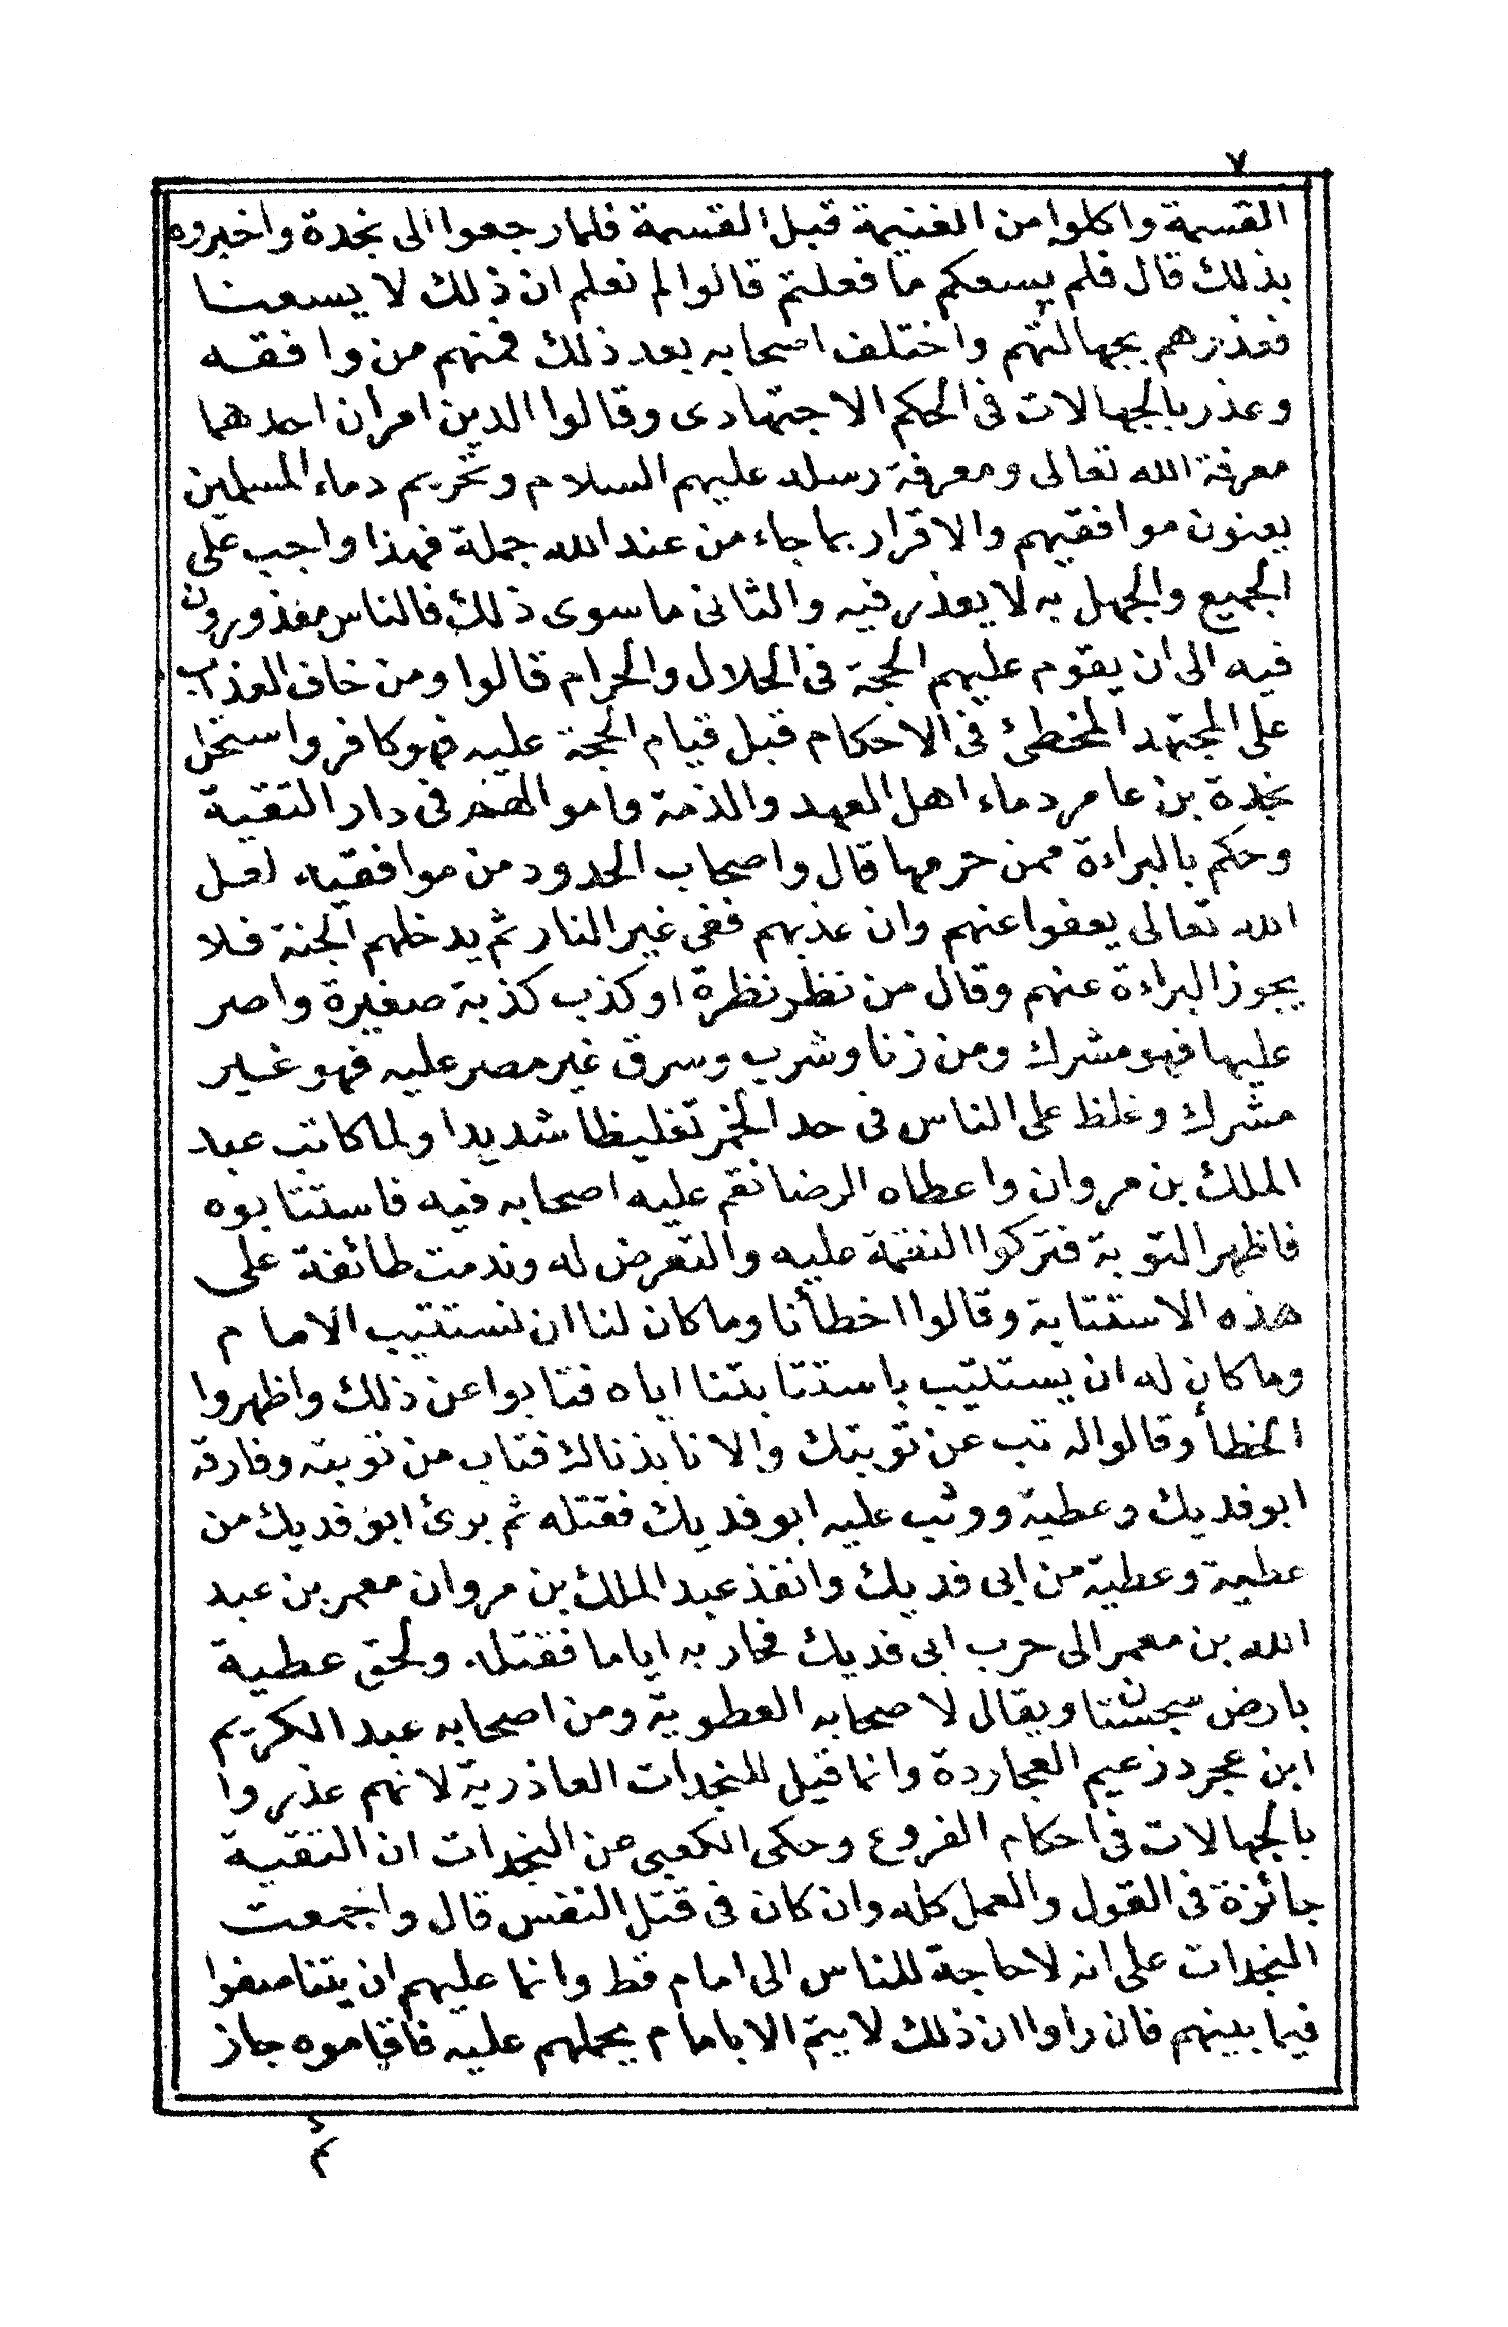 ٧
القسمة واكلوا من الغنيمة قبل القسمة فلما رجعوا الى نجدة واخبروه
بذلك قال فلم يسعكم ما فعلتم قالوا لم نعلم ان ذلك لا يسعنا
فعذرهم بجهالتهم واختلف اصحابه بعد ذلك فمنهم من وافقه
وعذر بالجهالات فى الحكم الاجتهادى وقالوا الدين امران احدهما
معرفة الله تعالى ومعرفة رسله عليهم السلام وتحريم دماء المسلمين
يعنون موافقيهم والاقرار بما جاء من عند الله جملة فهذا واجب على
الجميع والجهل به لا يعذر فيه والثانى ما سوى ذلك فالناس معذورون
فيه الى ان يقوم عليهم الحجة فى الحلال والحرام قالوا ومن خاف العذاب
على المجتهد المخطئ فى الاحكام قبل قيام الحجة عليه فهو كافر واستحل
نجدة بن عامر دماء اهل العهد والذمة واموالهم فى دار التقية
وحكم بالبراءة ممن حرمها قال واصحاب الحدود من موافقيه لعل
الله تعالى يعفوا عنهم وان عذبهم ففى غير النار ثم يدخلهم الجنة فلا
يجوز البراءة عنهم وقال من نظر نظرة او كذب كذبة صغيرة واصر
عليها فهو مشرك ومن زنا وشرب وسرق غير مصر عليه فهو غير
مشرك وغلظ على الناس فى حد الخمر تغليظا شديدا ولما كاتب عبد
الملك بن مروان واعطاه الرضا نقم عليه اصحابه فيه فاستتابوه
فاظهر التوبة فتركوا النقمة عليه والتعرض له وندمت طائفة على
هذه الاستتابة وقالوا اخطأنا وما كان لنا ان نستتيب الامام
وما كان له ان يستتيب باستتابتنا اياه فتابوا عن ذلك واظهروا
الخطأ وقالوا له تب عن توبتك والا نابذناك فتاب من توبته وفارقه
ابو فديك وعطية ووثب عليه ابو فديك فقتله ثم برئ ابو فديك من
عطية وعطية من ابى فديك وانفذ عبد الملك بن مروان معمر بن عبد
الله بن معمر الى حرب ابى فديك فحاربه اياما فقتله ولحق عطية
بارض سجستان ويقال لاصحابه العطوية ومن اصحابه عبد الكريم
ابن عجرد زعيم العجاردة وانما قيل للنجدات العاذرية لانهم عذروا
بالجهالات فى احكام الفروع وحكى الكعبى عن النجدات ان التقية
جائزة فى القول والعمل كله وان كان فى قتل النفس قال واجمعت
النجدات على انه لا حاجة للناس الى امام قط وانما عليهم ان يتناصفوا
فيما بينهم فان راوا ان ذلك لا يتم الا بامام يحملهم عليه فاقاموه جاز